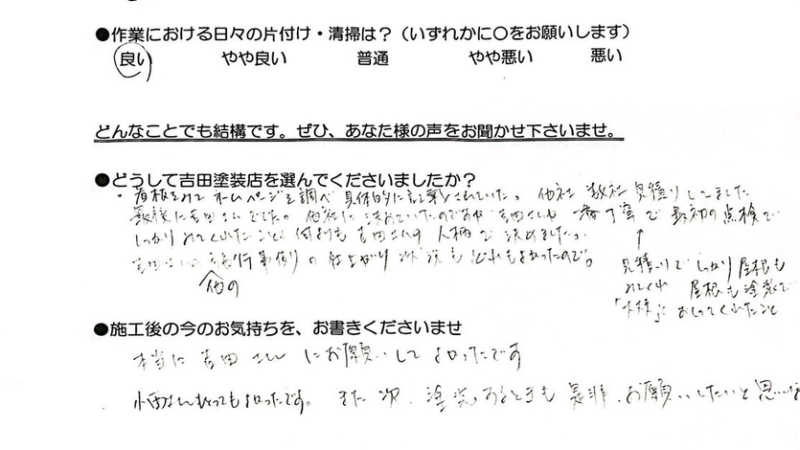 ●作業における日々の片付け・清掃は？（いずれかに○をお願いします）
良い やや良い 普通 やや悪い 悪い
どんなことでも結構です。ぜひ、あなた様の声をお聞かせ下さいませ。
●どうして吉田塗装店を選んでくださいましたか？
・看板をみて ホームページを調べ 具体的に されていた。他社 数社 見積りしてました
最後に吉田さんでした。他社に決めていたのですが 吉田さんも 一番丁寧で 最初の点検で
しっかりみてくれたこと、何よりも吉田さんの人柄で決めました。
吉田さんの 他の 事例の仕上がり 状況も とてもよかったので。
見積りで しっかり屋根も
みてくれ 屋根も塗装で
「大丈夫」と おしえてくれたこと
●施工後の今のお気持ちを、お書きくださいませ
本当に吉田さんにお願いしてよかったです
とってもよかったです。また次、塗装あるときも是非、お願いしたいと思い